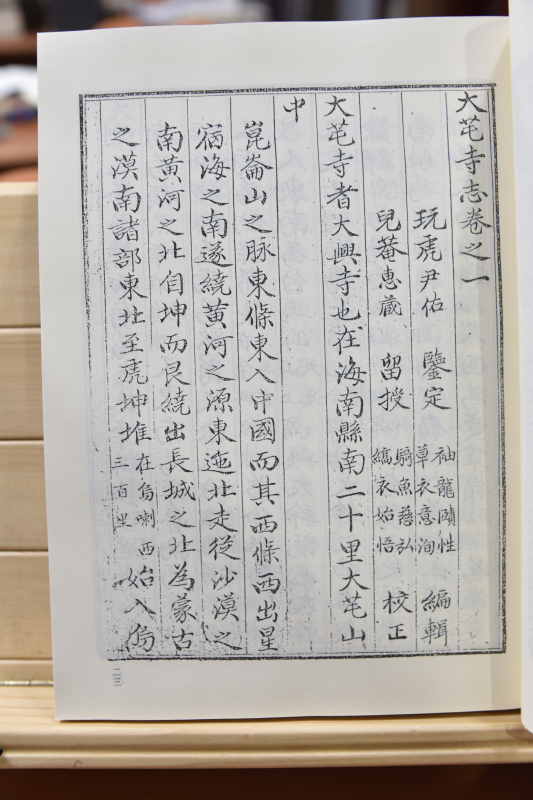 大芚寺志卷之一
玩虎尹佑 鑒定 袖龍賾性 草衣意洵 編輯
兒菴惠藏 留授 騎魚慈弘 縞衣始悟 校正
大芚寺者大興寺也在海南縣南二十里大芚山
中
崑崙山之脉東條東入中國而其西條西出星
宿海之南遂繞黃河之源東迤北走從沙漠之
南黃河之北自坤而艮繞出長城之北為蒙古
之漠南諸部東北至虎坤堆 在烏喇西 三百里 始入烏
二三